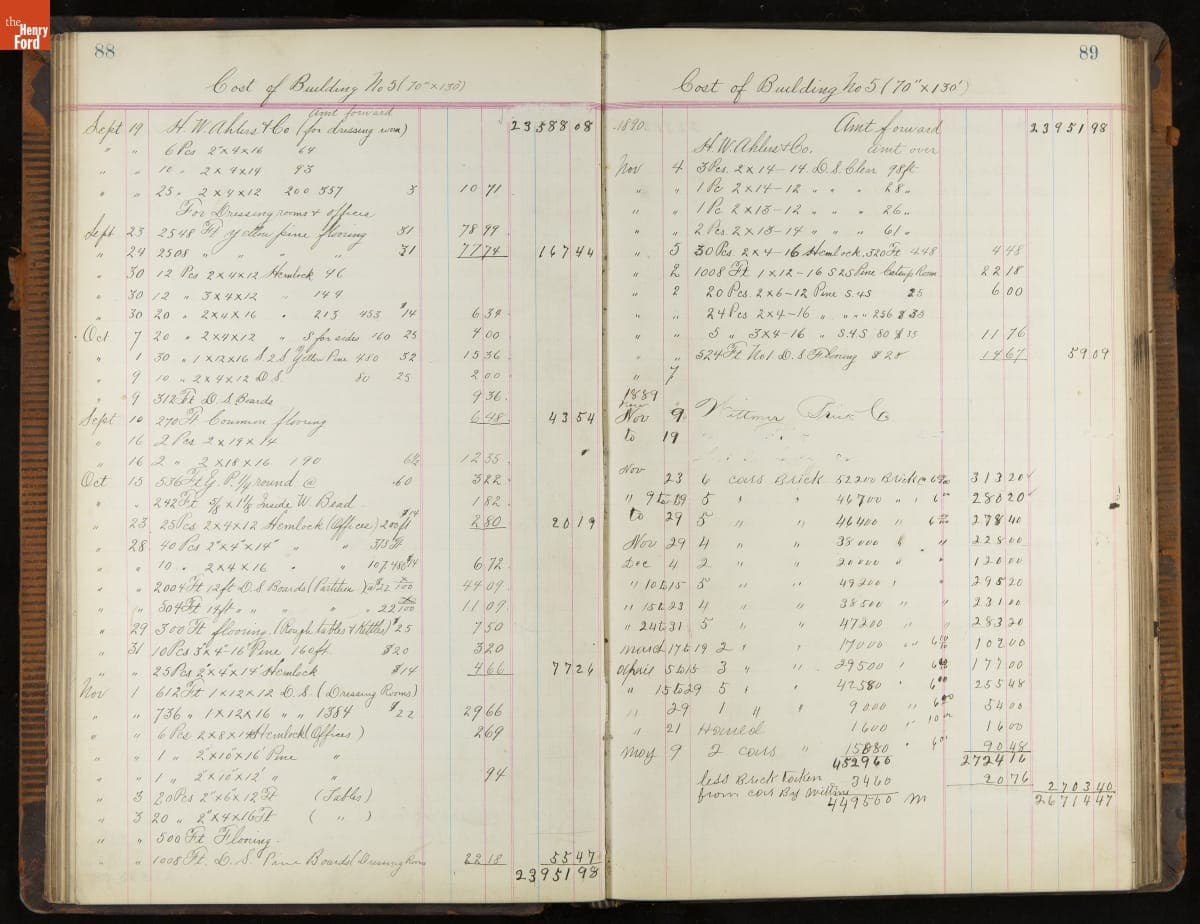 the Henry Ford
88
Cost of Building No 5 (70" x 130')
Amt forward
Sept 19 H. W. Ahlers & Co (for dressing room) 23588 08
" " 6 Pcs 2x4x16 64
" " 10 " 2x4x14 93
" " 25 " 2x4x12 200 357 3 10 71
For Dressing rooms & offices
Sept 23 2548 Ft Yellow pine flooring 31 78 99
" 24 2508 " " " " 31 77 74 167 44
" 30 12 Pcs 2x4x12 Hemlock 96
" 30 12 " 3x4x12 " 144
" 30 20 " 2x4x16 " 213 453 $14 6 34
Oct 7 20 " 2x4x12 " S four sides 160 25 4 00
" 1 30 " 1x12x16 S.2S Yellow Pine 480 32 15 36
" 9 10 " 2x4x12 D.S. 80 25 2 00
" 9 312 Ft D.S. Boards 9 36
Sept 10 270 Ft Common flooring 6 48 43 54
" 16 2 Pcs 2x14x14
" 16 2 " 2x18x16 190 6½ 12 35
Oct 15 536 Ft G. P. ¼ round @ .60 3 22
" " 242 Ft 5/8 x 1 1/8 Inside W. Bead 1 82
" 23 25 Pcs 2x4x12 Hemlock (Offices) 200 ft $14 2 80 20 19
" 28 40 Pcs 2"x4"x14' " " 373 Ft
" " 10 " 2x4x16 " " 107 480 $14 6 72
" " 2004 Ft 12 ft D.S Boards (Partition) @ $22 /100 44 09
" " 504 Ft 14 ft " " " " 22 /100 11 09
" 29 300 Ft flooring (Rough tables & Kettles) $25 7 50
" 31 10 Pcs 3"x4"-16' Pine 160 ft $20 3 20
" " 25 Pcs 2"x4"x14' Hemlock $14 4 66 77 26
Nov 1 612 Ft 1x12x12 D.S. (Dressing Rooms)
" " 736 " 1x12x16 " " 1384 $22 29 66
" " 6 Pcs 2x8x1 Hemlock (Offices) 2 69
" " 1 " 2"x10"x16' Pine "
" " 1 " 2"x10"x12' " " 94
" 3 20 Pcs 2"x6"x12 Ft (Tables)
" 3 20 " 2"x4x16 Ft ( " )
" " 500 Ft Flooring
" " 1008 Ft. D. S. Pine Boards (Dressing Room 22 18 55 47
23951 98
89
Cost of Building No 5 (70" x 130')
1890. Amt forward 23951 98
H. W. Ahlers & Co. amt over
Nov 4 3 Pcs. 2x14-14 D.S. Clear 98 ft
" " 1 Pc 2x14-12 " " " 28 "
" " 1 Pc 2x13-12 " " " 26 "
" " 2 Pcs 2x13-14 " " " 61 "
" 5 30 Pcs. 2x4-16 Hemlock. 320 Ft 4.48 4 48
" 2 1008 Ft 1x12-16 S2S Pine Catsup Room 22 18
" 2 20 Pcs. 2x6-12 Pine S.4S 25 6 00
" " 24 Pcs 2x4-16 " " " 256 $35
" " 5 " 3x4-16 " S.4S 80 $35 11 76
" " 524 Ft No 1 D. S Flooring $28 14 67 59 09
" 7
1889
Nov 9 Wittmer Brick Co
to 19
Nov 23 6 cars Brick 52200 Brick @ 6 00 313 20
" 9 to 19 5 " " 46700 " " 6 280 20
to 29 5 " " 46400 " 6 278 40
Nov 29 4 " " 38000 " " 228 00
Dec 4 2 " " 20000 " " 120 00
" 10 to 15 5 " " 49200 " " 295 20
" 15 to 23 4 " " 38500 " " 231 00
" 24 to 31 5 " " 47200 " " 283 20
March 17 to 19 2 " " 17000 " " 6 00 102 00
April 5 to 15 3 " " 29500 " 6 00 177 00
" 15 to 29 5 " " 42580 " 6 00 255 48
" 29 1 " " 9000 " 6 00 54 00
" 21 Hauled 1600 " 10 00 16 00
May 9 2 cars " 15080 " 6 00 90 48
452960 2724 16
less Brick taken 3460 20 76 2703 40
from cars By Wittmer 449500 M 26714 47